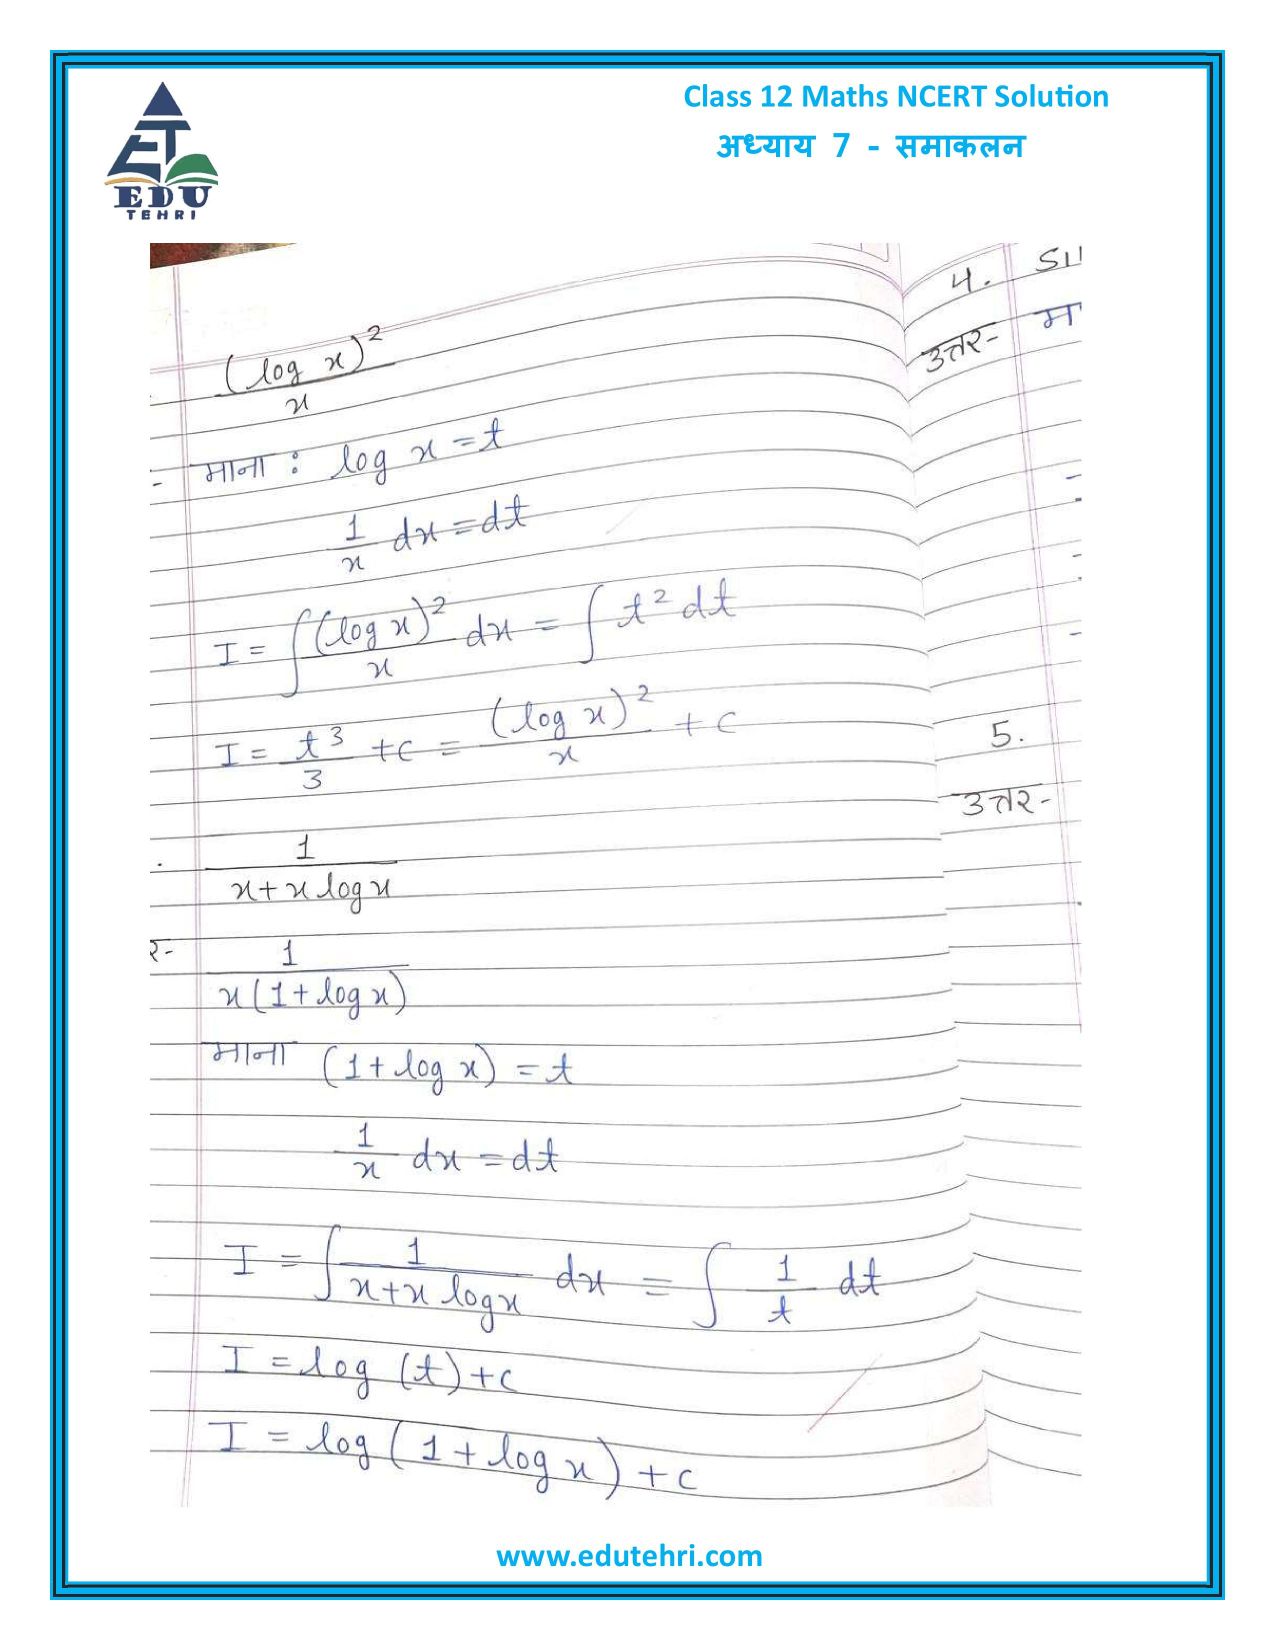 EDU
TEHRI
Class 12 Maths NCERT Solution
अध्याय 7 - समाकलन
(log x)² / x
माना : log x = t
1/x dx = dt
I = ∫ (log x)² / x dx = ∫ t² dt
I = t³/3 + c = (log x)² / x + c
1 / x + x log x
र- 1 / x(1 + log x)
माना (1 + log x) = t
1/x dx = dt
I = ∫ 1 / x + x log x dx = ∫ 1/t dt
I = log (t) + c
I = log (1 + log x) + c
4.
उत्तर-
5.
उत्तर-
www.edutehri.com